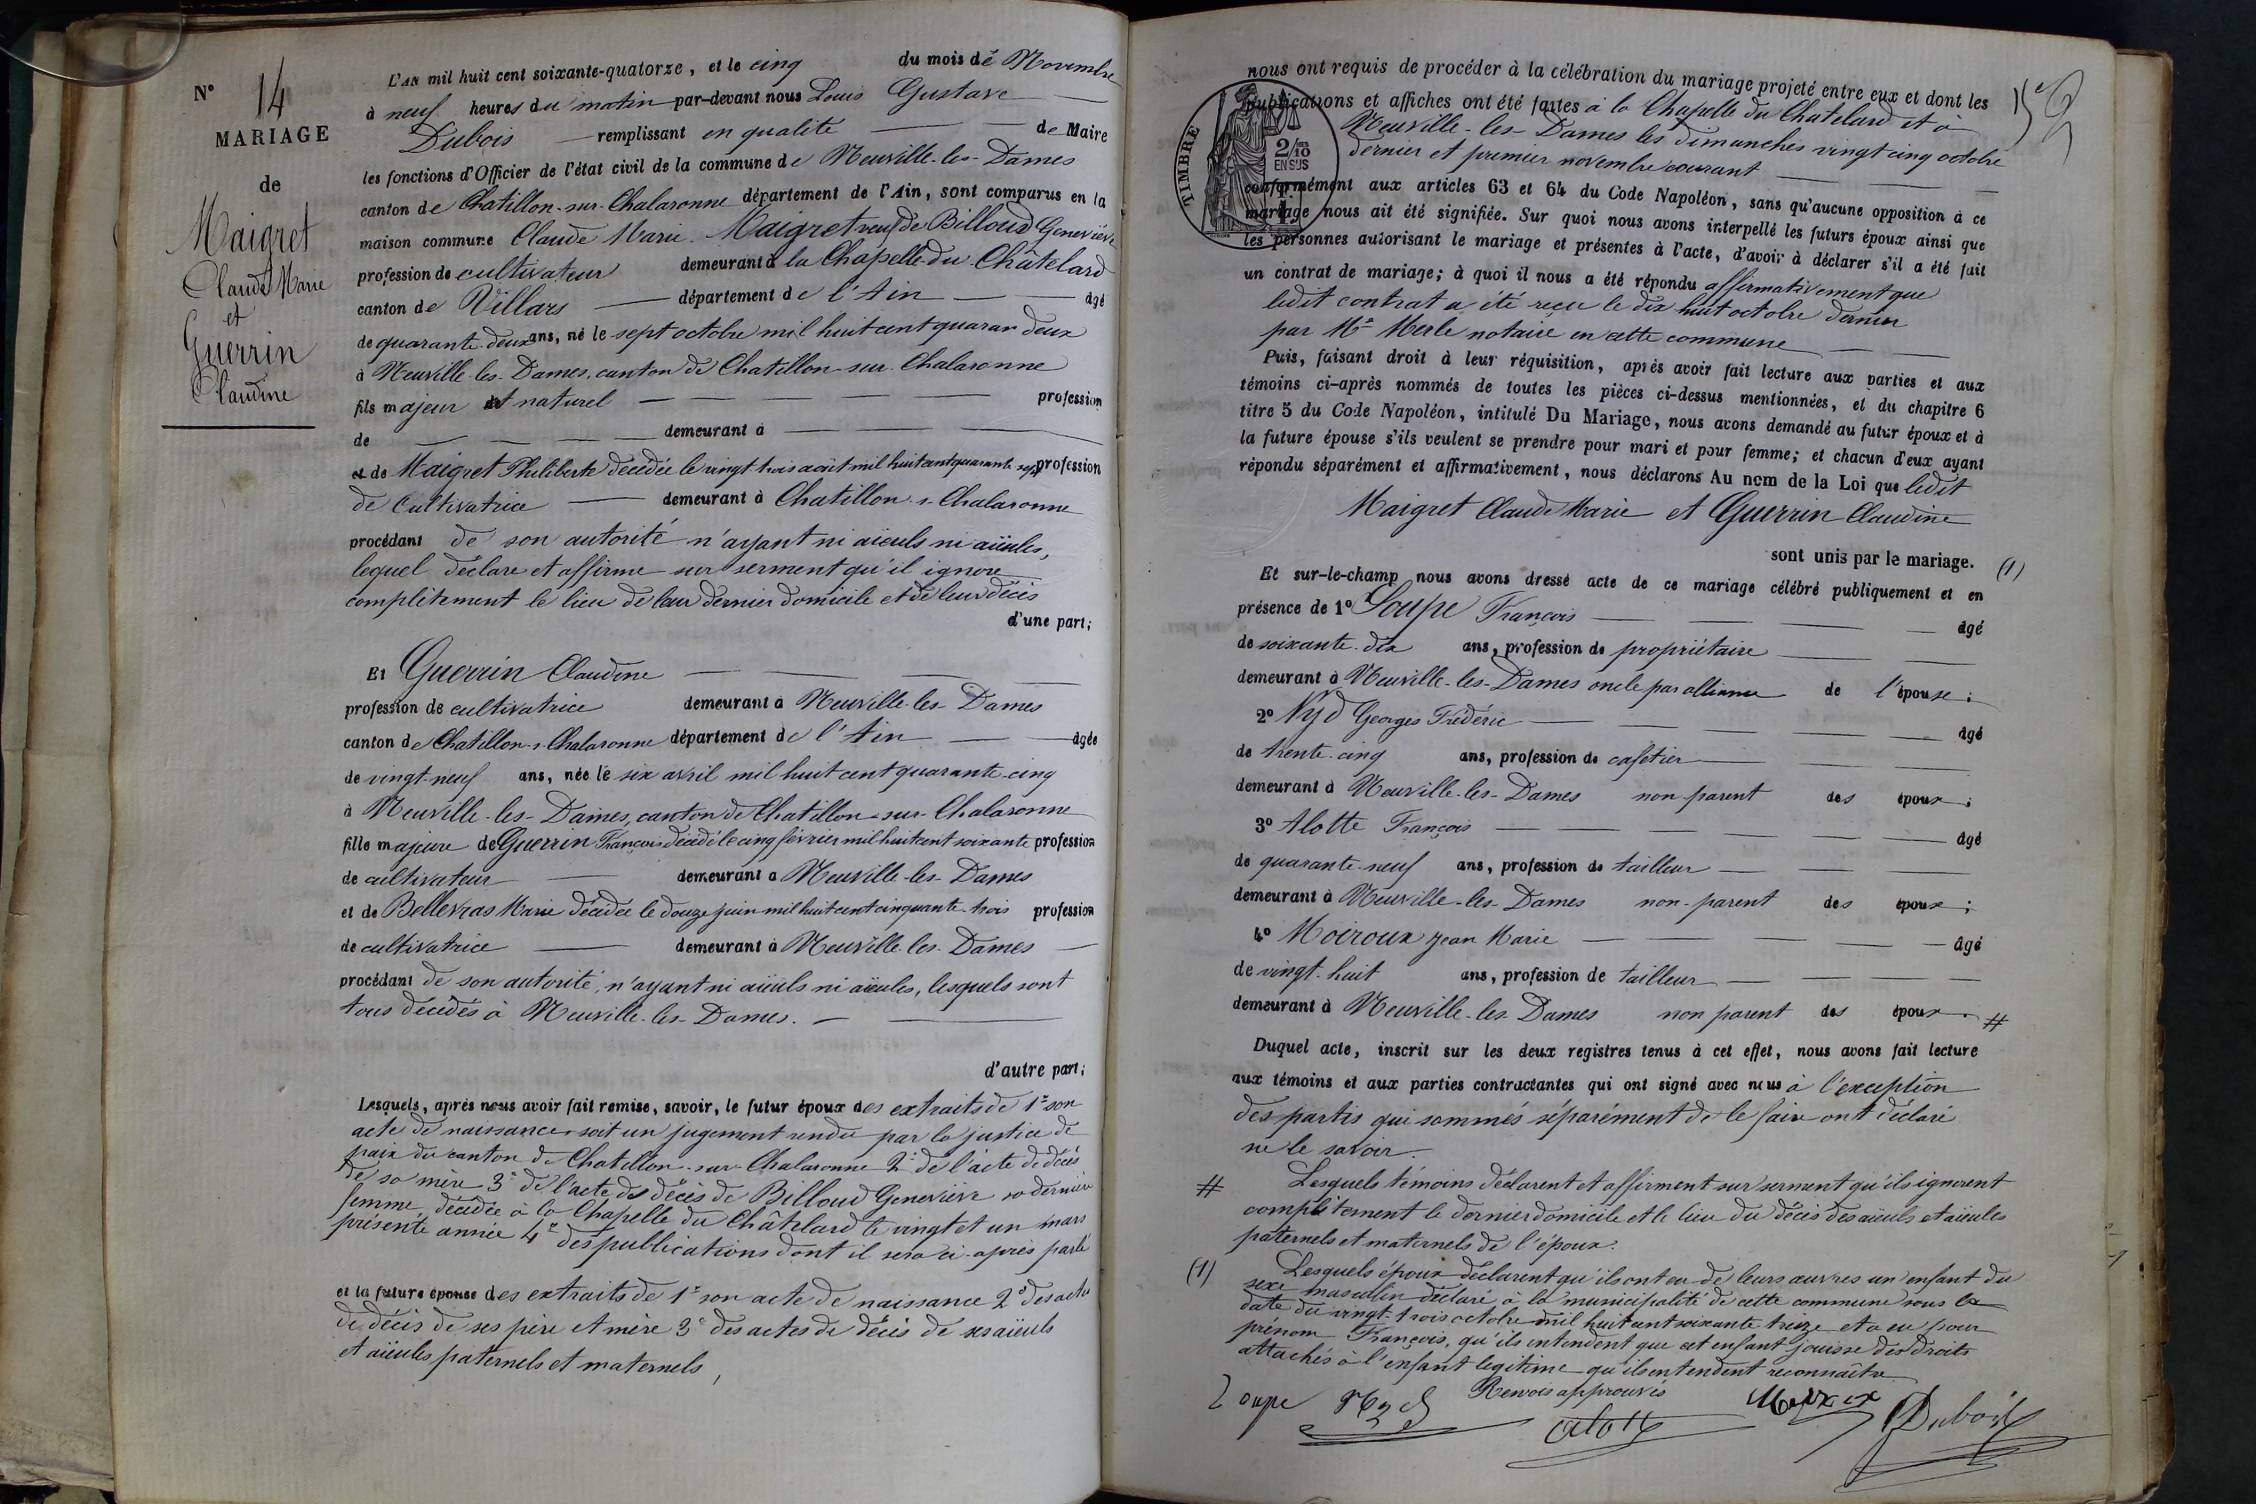 N° 14
MARIAGE
de
Maigret
Claude Marie
et
Guerrin
Claudine
L'AN mil huit cent soixante-quatorze, et le cinq du mois de Novembre
à neuf heures du matin par-devant nous Louis Gustave
Dubois remplissant en qualité de Maire
les fonctions d'Officier de l'état civil de la commune de Neuville-les-Dames
canton de Chatillon-sur-Chalaronne département de l'Ain, sont comparus en la
maison commune Claude Marie Maigret veuf de Billoud Geneviève
profession de cultivateur demeurant à la Chapelle du Châtelard
canton de Villars département de l'Ain âgé
de quarante deux ans, né le sept octobre mil huit cent quaran deux
à Neuville-les-Dames, canton de Chatillon-sur-Chalaronne
fils majeur et naturel profession
de demeurant à
et de Maigret Philiberte décédée le vingt trois août mil huit cent quarante sept profession
de cultivatrice demeurant à Chatillon-s-Chalaronne
procédant de son autorité n'ayant ni aïeuls ni aïeules,
lequel déclare et affirme sur serment qu'il ignore
complètement le lieu de leur dernier domicile et de leur décès
d'une part;
Et Guerrin Claudine
profession de cultivatrice demeurant à Neuville-les-Dames
canton de Chatillon-s-Chalaronne département de l'Ain âgée
de vingt-neuf ans, née le six avril mil huit cent quarante-cinq
à Neuville-les-Dames, canton de Chatillon-sur-Chalaronne
fille majeure de Guerrin François décédé le cinq février mil huit cent soixante profession
de cultivateur demeurant à Neuville-les-Dames
et de Bellevras Marie décédée le douze juin mil huit cent cinquante-trois profession
de cultivatrice demeurant à Neuville-les-Dames
procédant de son autorité, n'ayant ni aïeuls ni aïeules, lesquels sont
tous décédés à Neuville-les-Dames.
d'autre part;
Lesquels, après nous avoir fait remise, savoir, le futur époux des extraits de 1° son
acte de naissance soit un jugement rendu par la justice de
paix du canton de Chatillon-sur-Chalaronne 2° de l'acte de décès
de sa mère 3° de l'acte de décès de Billoud Geneviève sa dernière
femme, décédée à la Chapelle du Châtelard le vingt et un mars
présente année 4° des publications dont il sera ci-après parlé
et la future épouse des extraits de 1° son acte de naissance 2° des actes
de décès de ses père et mère 3° des actes de décès de ses aïeuls
et aïeules paternels et maternels,
nous ont requis de procéder à la célébration du mariage projeté entre eux et dont les
publications et affiches ont été faites à la Chapelle du Chatelard et à
Neuville-les-Dames les dimanches vingt cinq octobre
dernier et premier novembre courant
conformément aux articles 63 et 64 du Code Napoléon, sans qu'aucune opposition à ce
mariage nous ait été signifiée. Sur quoi nous avons interpellé les futurs époux ainsi que
les personnes autorisant le mariage et présentes à l'acte, d'avoir à déclarer s'il a été fait
un contrat de mariage; à quoi il nous a été répondu affirmativement que
ledit contrat a été reçu le dix huit octobre dernier
par Me Merle notaire en cette commune
TIMBRE
2/10
EN SUS
Puis, faisant droit à leur réquisition, après avoir fait lecture aux parties et aux
témoins ci-après nommés de toutes les pièces ci-dessus mentionnées, et du chapitre 6
titre 5 du Code Napoléon, intitulé Du Mariage, nous avons demandé au futur époux et à
la future épouse s'ils veulent se prendre pour mari et pour femme; et chacun d'eux ayant
répondu séparément et affirmativement, nous déclarons Au nom de la Loi que ledit
Maigret Claude Marie et Guerrin Claudine
sont unis par le mariage. (1)
Et sur-le-champ nous avons dressé acte de ce mariage célébré publiquement et en
présence de 1° Soupe François âgé
de soixante-dix ans, profession de propriétaire
demeurant à Neuville-les-Dames oncle par alliance de l'épouse;
2° Nyd Georges Frédéric âgé
de trente-cinq ans, profession de cafetier
demeurant à Neuville-les-Dames non parent des époux;
3° Alotte François âgé
de quarante-neuf ans, profession de tailleur
demeurant à Neuville-les-Dames non-parent des époux;
4° Moiroux Jean Marie âgé
de vingt-huit ans, profession de tailleur
demeurant à Neuville-les-Dames non parent des époux. #
Duquel acte, inscrit sur les deux registres tenus à cet effet, nous avons fait lecture
aux témoins et aux parties contractantes qui ont signé avec nous à l'exception
des partis qui sommés séparément de le faire ont déclaré
ne le savoir.
# Lesquels témoins déclarent et affirment sur serment qu'ils ignorent
complètement le dernier domicile et le lieu du décès des aïeuls et aïeules
paternels et maternels de l'époux.
(1) Lesquels époux déclarent qu'ils ont eu de leurs œuvres un enfant du
sexe masculin déclaré à la municipalité de cette commune sous la
date du vingt-trois octobre mil huit cent soixante treize et a eu pour
prénom François, qu'ils entendent que cet enfant jouisse des droits
attachés à l'enfant légitime qu'ils entendent reconnaître
Renvois approuvés
Soupe Nyd Alotte Moiroux Dubois